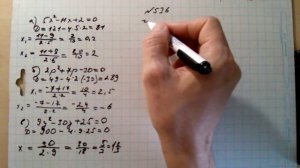 №536
а) 5x²-11x+2=0
D=121-4·5·2=81
x₁=(11-9)/(2·5)=2/10=0,2
x₂=(11+9)/(2·5)=20/10=2
б) 2p²+7p-30=0
D=49-4·2·(-30)=289
x₁=(-7+17)/(2·2)=10/4=2,5
x₂=(-7-17)/(2·2)=-24/4=-6
с) 9y²-30y+25=0
D=900-4·9·25=0
x=30/(2·9)=30/18=5/3